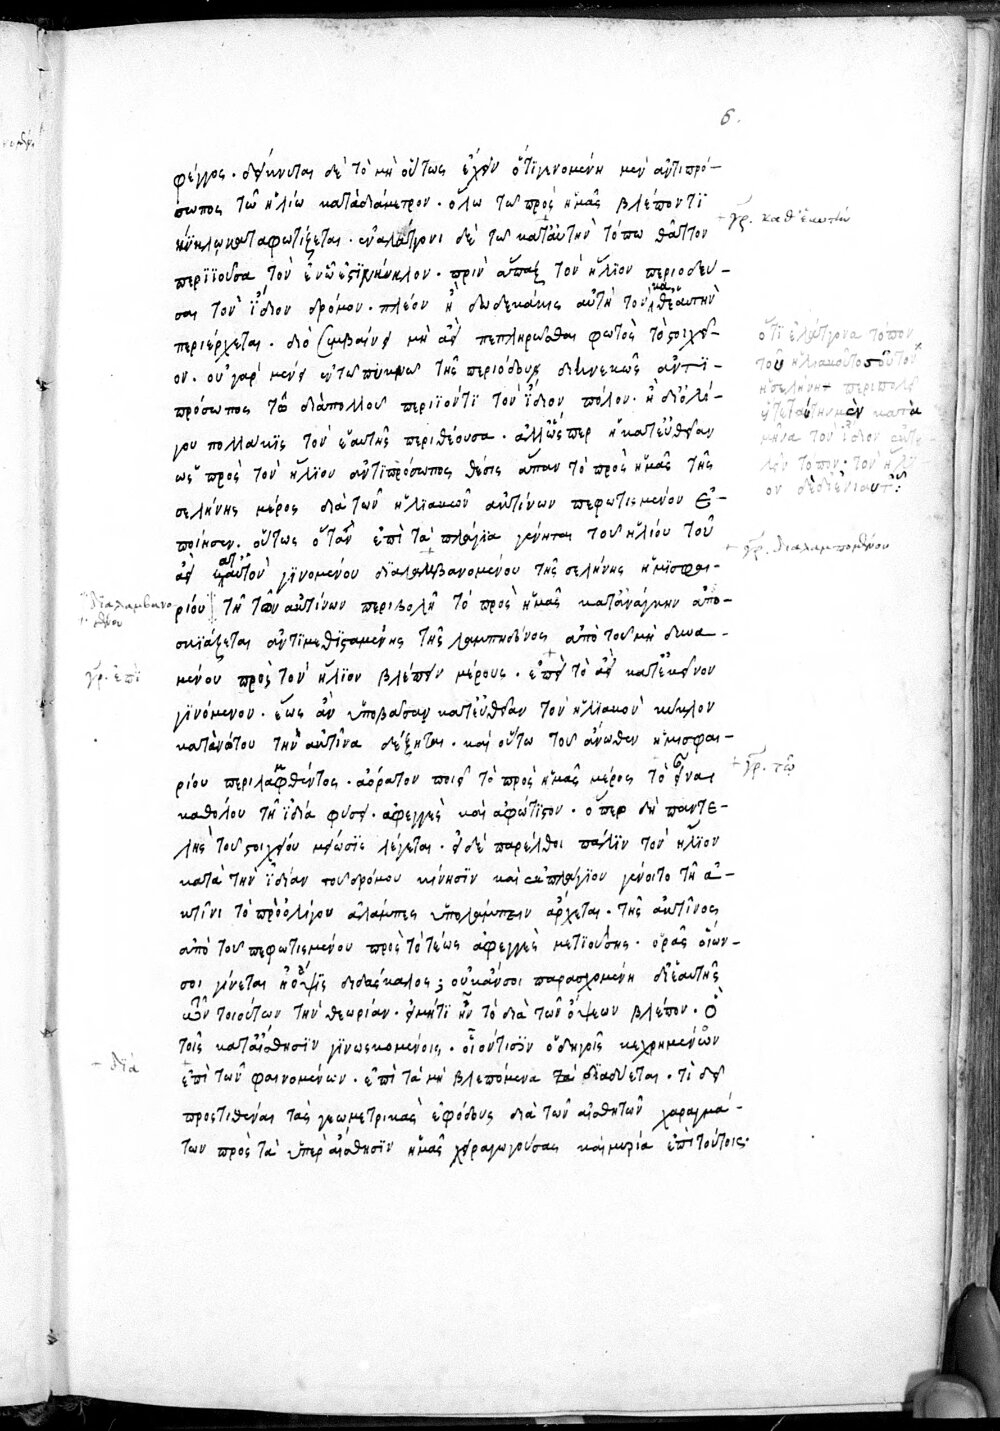 6.
φέγγος. δείκνυται δὲ τὸ μὴ οὕτως ἔχειν ὅτι γενομένη μὲν ἀντιπρό-
σωπος τῶ ἡλίω κατὰ διάμετρον. ὅλω τῶ πρὸς ἡμᾶς βλέποντι
κύκλω καταφωτίζεται. ἐν ἐλάττονι δὲ τῶ κατ' αὐτὴν τόπω θᾶττον
περιϊοῦσα τὸν ἐν ὧ ἐστὶ κύκλον. πρὶν ἅπαξ τὸν ἥλιον περιοδεῦ-
σαι τὸν ἴδιον δρόμον. πλέον ἢ δωδεκάκις αὐτὴ τὸν καθ' ἑαυτὴν
περιέρχεται. διὸ συμβαίνει μὴ ἀεὶ πεπληρῶσθαι φωτὸς τὸ στοιχεῖ-
ον. οὐ γὰρ μένει ἐν τῶ πυκνῶ τῆς περιόδου διηνεκῶς ἀντι-
πρόσωπος τῶ διὰ πολλοῦ περιϊόντι τὸν ἴδιον πόλον. ἡ δι' ὀλί-
γου πολλακις τὸν ἑαυτῆς περιθέουσα. ἀλλ' ὥσπερ ἡ κατ' εὐθεῖαν
ὡς πρὸς τὸν ἥλιον ἀντιπρόσωπος θέσις ἅπαν τὸ πρὸς ἡμᾶς τῆς
σελήνης μέρος διὰ τῶν ἡλιακῶν ἀκτίνων πεφωτισμένον ἐ-
ποίησεν. οὕτως ὅταν ἐπὶ τὰ πλάγια γένηται τοῦ ἡλίου τοῦ
ἀεὶ κατ' αὐτὸν γινομένου διαλαμβανομένου τῆς σελήνης ἡμισφαι-
ρίου τῆ τῶν ἀκτίνων περιβολῆ τὸ πρὸς ἡμᾶς κατ' ἀνάγκην ἀπο-
σκιάζεται ἀντιμεθισταμένης τῆς λαμπηδόνος ἀπὸ τοῦ μὴ δυνα-
μένου πρὸς τὸν ἥλιον βλέπειν μέρους. ἐπὶ τὸ ἀεὶ κατ' ἐκεῖνον
γινόμενον. ἕως ἂν ὑποβᾶσαν κατ' εὐθεῖαν τὸν ἡλιακὸν κύκλον
κατὰ νώτου τὴν ἀκτῖνα δέξηται. καὶ οὕτω τοῦ ἄνωθεν ἡμισφαι-
ρίου περιλαμφθέντος. ἀόρατον ποιεῖ τὸ πρὸς ἡμᾶς μέρος τὸ εἶναι
καθόλου τῆ ἰδία φύσει. ἀφεγγὲς καὶ ἀφώτιστον. ὅπερ δὴ παντε-
λὴς τοῦ στοιχείου μείωσις λέγεται. εἰ δὲ παρέλθοι πάλιν τὸν ἥλιον
κατὰ τὴν ἰδίαν τοῦ δρόμου κίνησιν καὶ ἐκ πλαγίου γένοιτο τῆ ἀ-
κτῖνι τὸ πρὸ ὀλίγου ἀλαμπὲς ὑπολάμπειν ἄρχεται. τῆς ἀκτῖνος
ἀπὸ τοῦ πεφωτισμένου πρὸς τὸ τέως ἀφεγγὲς μετιούσης. ὁρᾶς οἵων
σοι γίνεται ἡ ὄψις διδάσκαλος; οὐκ ἄν σοι παρασχομένη δι' ἑαυτῆς
τῶν τοιούτων τὴν θεωρίαν. εἰ μή τι ἦν τὸ διὰ τῶν ὄψεων βλέπον. ὃ
τοῖς κατ' αἴσθησιν γινωσκομένοις. οἷόν τισιν ὁδηγοῖς κεχρημένον
ἐπὶ τῶν φαινομένων. ἐπὶ τὰ μὴ βλεπόμενα διαδύεται. τί δεῖ
προστιθέναι τὰς γεωμετρικὰς ἐφόδους διὰ τῶν αἰσθητῶν χαραγμά-
των πρὸς τὰ ὑπὲρ αἴσθησιν ἡμᾶς χειραγωγούσας καὶ μυρία ἐπὶ τούτοις.
γρ. καθ' ἑαυτὴν
ὅτι ἐλάττονα τόπον
τοῦ ἡλιακοῦ
ἡ σελήνη περιπολεῖ
κατὰ
μῆνα τὸν ἴδιον
τόπον. τὸν ἥλι
ον δὲ δι' ἐνιαυτοῦ:
γρ. διαλαμπομένου
διαλαμβανο
μένου
γρ. ἐπὶ
γρ. τῶ
διὰ